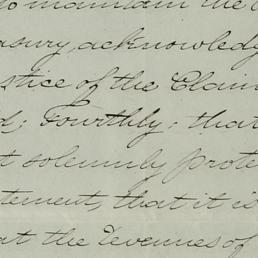 to maintain the
asury, acknowledg
stice of the Claim
d; Fourthly: that
t solemnly prote
tement, that it is
at the Revenues of